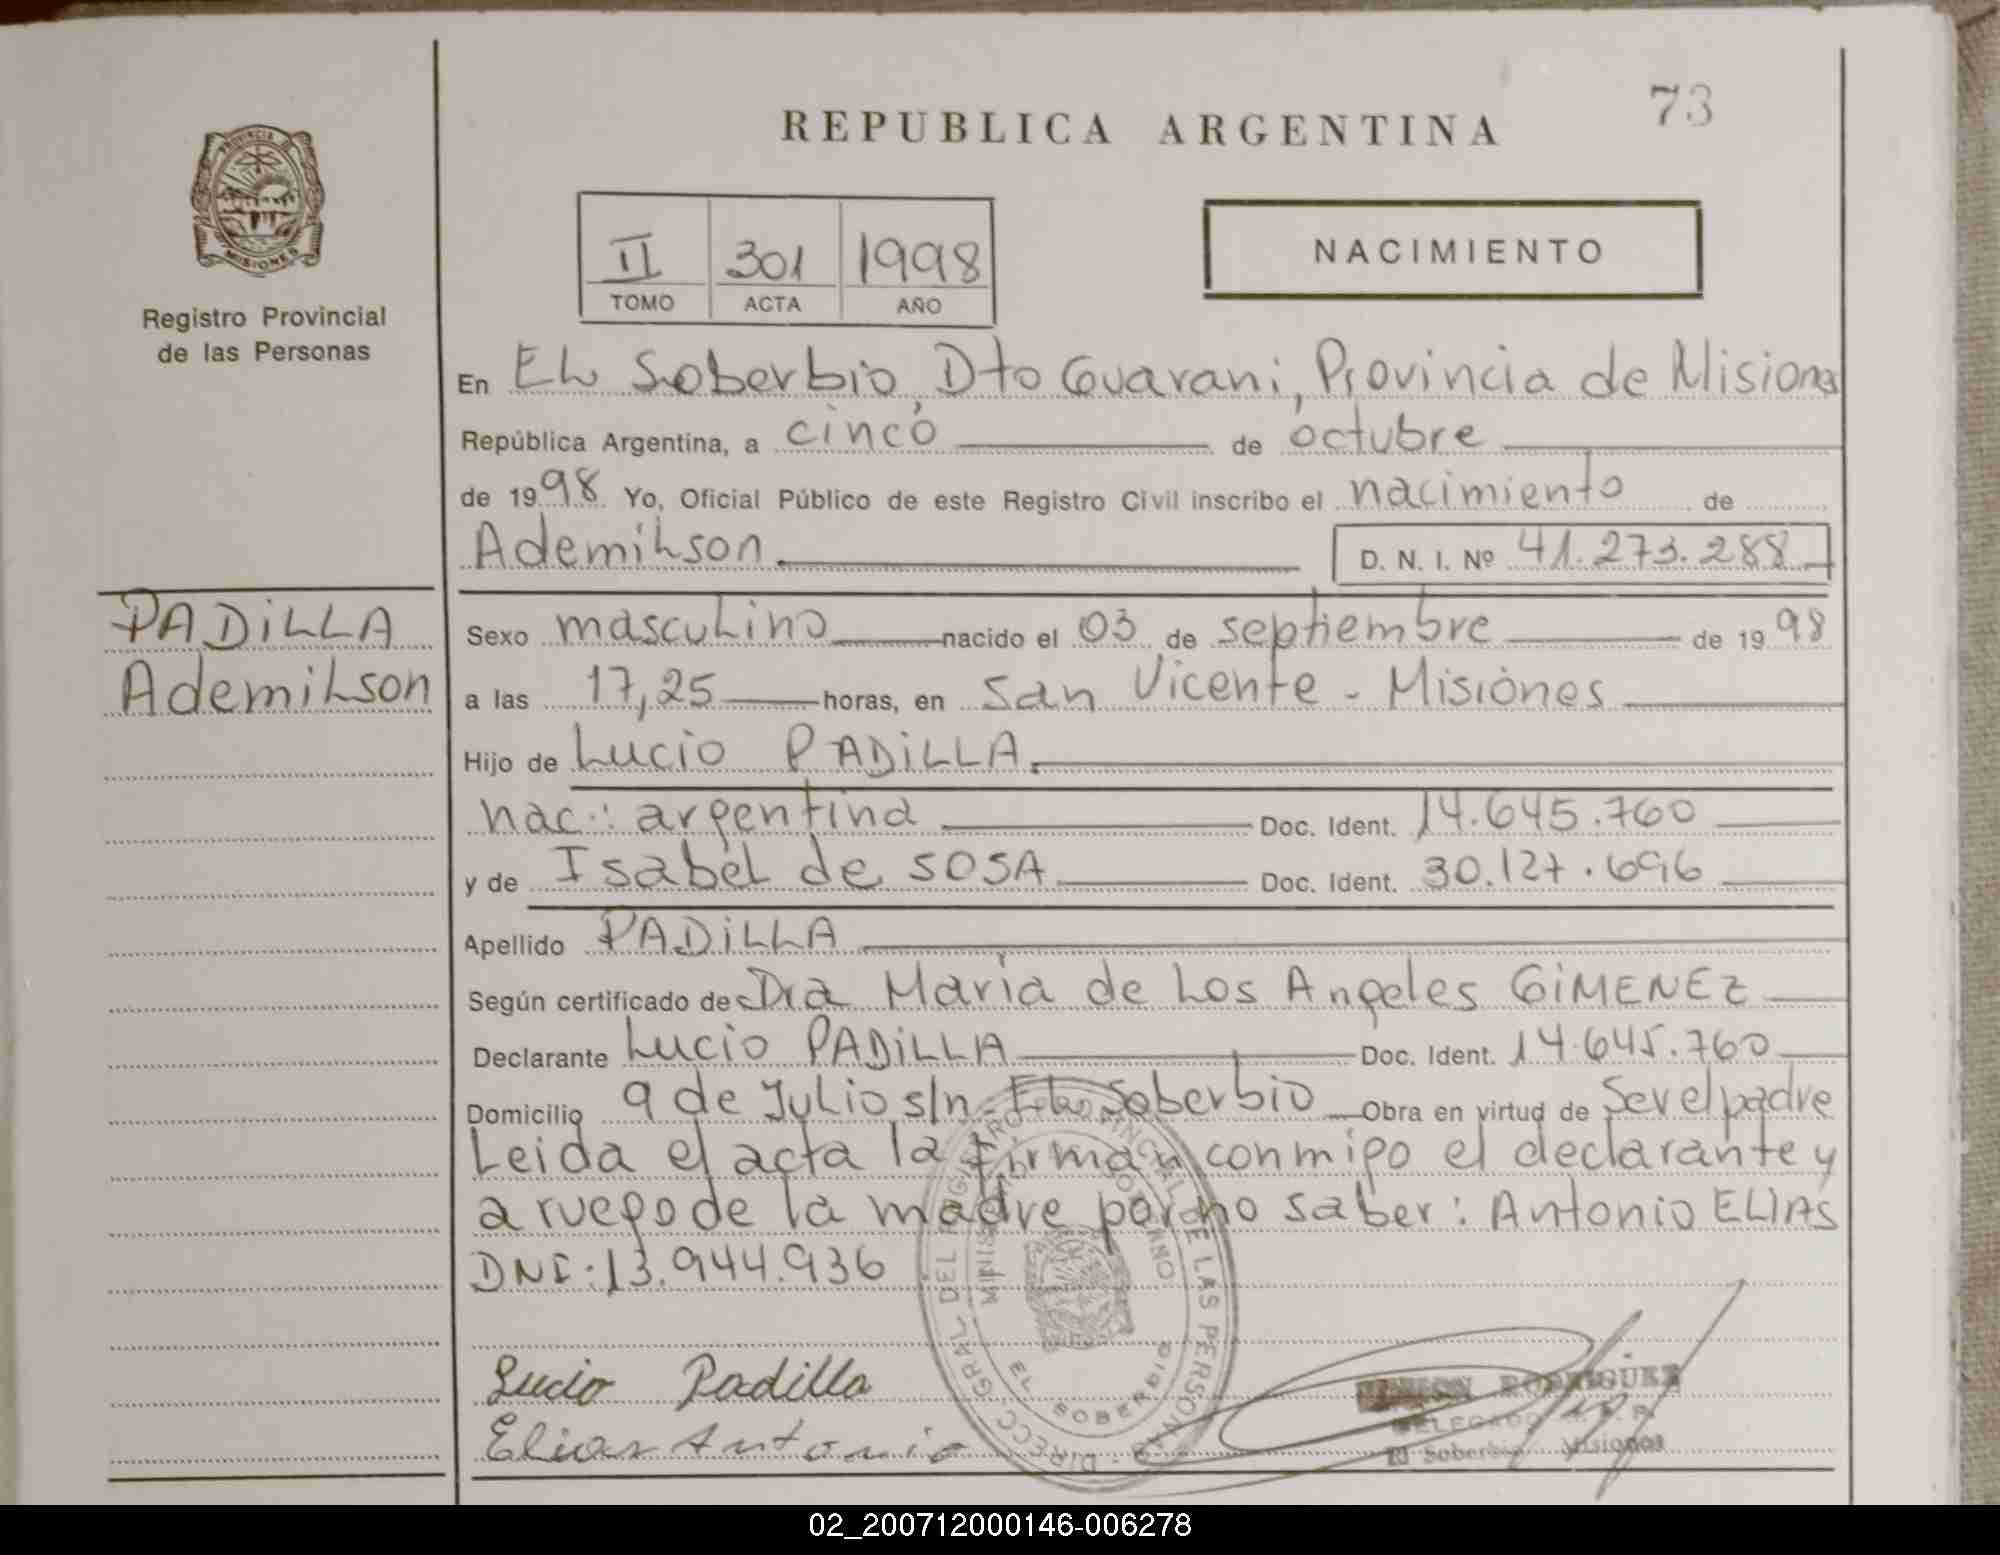 73
REPUBLICA ARGENTINA
PROVINCIA DE
MISIONES
Registro Provincial
de las Personas
II 301 1998
TOMO ACTA AÑO
NACIMIENTO
En El Soberbio, Dto Guarani, Provincia de Misiones
República Argentina, a cinco de octubre
de 1998 Yo, Oficial Público de este Registro Civil inscribo el nacimiento de
Ademilson D. N. I. Nº 41.273.288
PADiLLA
Ademilson
Sexo masculino nacido el 03 de septiembre de 1998
a las 17,25 horas, en San Vicente - Misiones
Hijo de Lucio PADiLLA
nac.: argentina Doc. Ident. 14.645.760
y de Isabel de SOSA Doc. Ident. 30.127.696
Apellido PADiLLA
Según certificado de Dra Maria de Los Angeles GiMENEZ
Declarante Lucio PADiLLA Doc. Ident. 14.645.760
Domicilio 9 de Julio s/n - El Soberbio Obra en virtud de Ser el padre
Leida el acta la firman conmigo el declarante y
a ruego de la madre por no saber: Antonio ELIAS
DNI: 13.944.936
DIRECC. GRAL. DEL REGISTRO PROVINCIAL DE LAS PERSONAS
EL SOBERBIO
Lucio Padilla
Elias Antonio
RODRIGUEZ
DELEGADO R. P. P.
El Soberbio Misiones
02_200712000146-006278